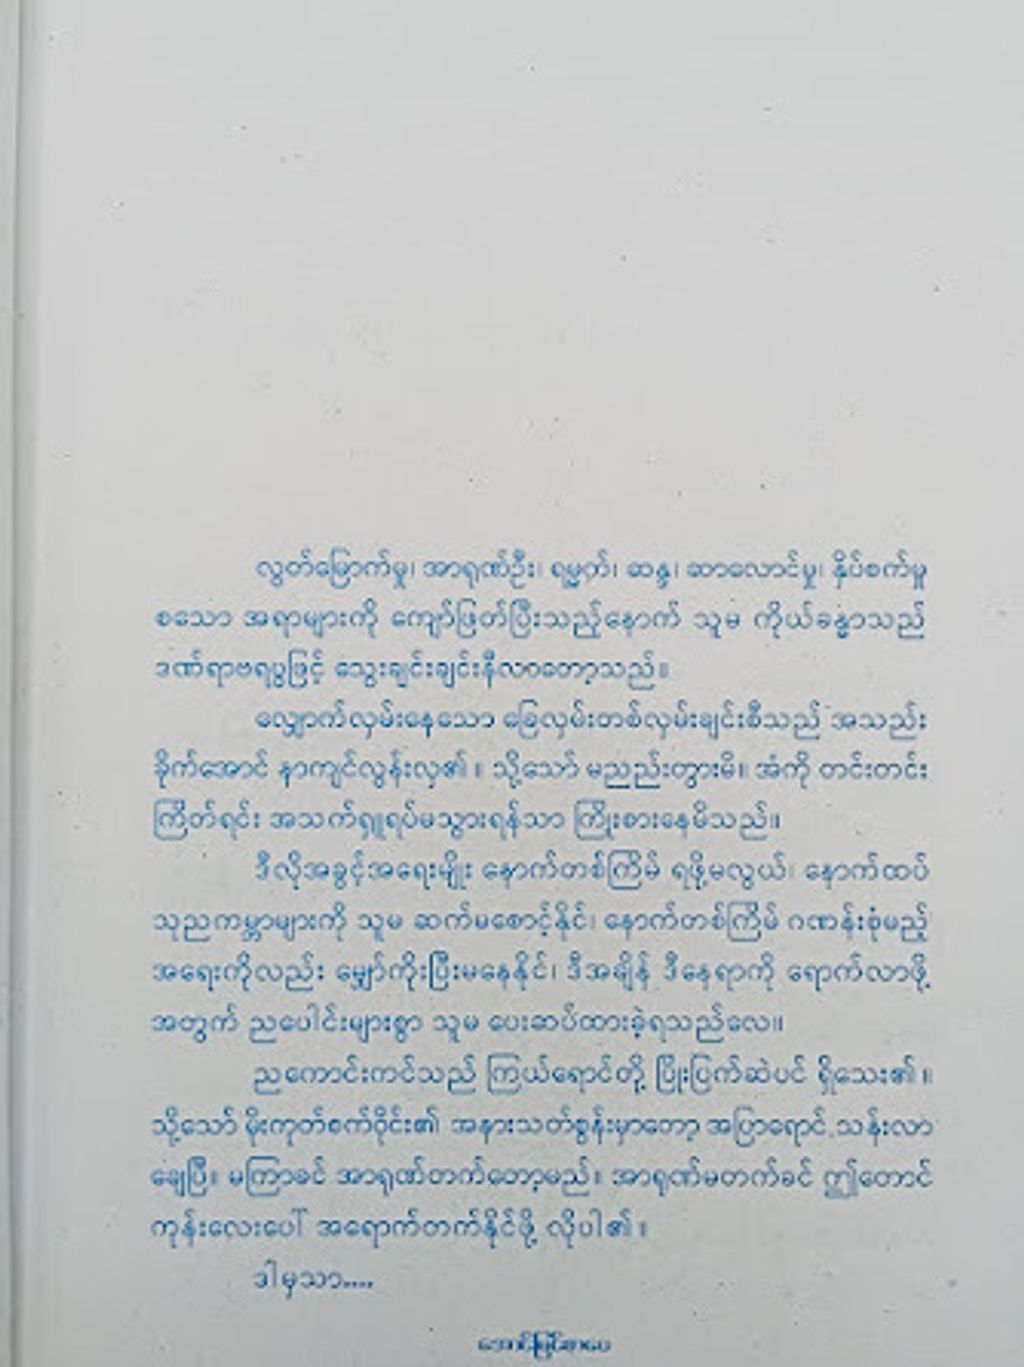 လွတ်မြောက်မှု၊ အာရုဏ်ဦး၊ ရမ္မက်၊ ဆန္ဒ၊ ဆာလောင်မှု၊ နှိပ်စက်မှု
စသော အရာများကို ကျော်ဖြတ်ပြီးသည့်နောက် သူမ ကိုယ်ခန္ဓာသည်
ဒဏ်ရာဗရပွဖြင့် သွေးချင်းချင်းနီလာတော့သည်။
လျှောက်လှမ်းနေသော ခြေလှမ်းတစ်လှမ်းချင်းစီသည် အသည်း
ခိုက်အောင် နာကျင်လွန်းလှ၏။ သို့သော် မညည်းတွားမိ။ အံကို တင်းတင်း
ကြိတ်ရင်း အသက်ရှူရပ်မသွားရန်သာ ကြိုးစားနေမိသည်။
ဒီလိုအခွင့်အရေးမျိုး နောက်တစ်ကြိမ် ရဖို့မလွယ်၊ နောက်ထပ်
သုညကမ္ဘာများကို သူမ ဆက်မစောင့်နိုင်၊ နောက်တစ်ကြိမ် ဂဏန်းစုံမည့်
အရေးကိုလည်း မျှော်ကိုးပြီးမနေနိုင်၊ ဒီအချိန် ဒီနေရာကို ရောက်လာဖို့
အတွက် ညပေါင်းများစွာ သူမ ပေးဆပ်ထားခဲ့ရသည်လေ။
ညကောင်းကင်သည် ကြယ်ရောင်တို့ ပြိုးပြက်ဆဲပင် ရှိသေး၏။
သို့သော် မိုးကုတ်စက်ဝိုင်း၏ အနားသတ်စွန်းမှာတော့ အပြာရောင် သန်းလာ
ချေပြီ။ မကြာခင် အာရုဏ်တက်တော့မည်။ အာရုဏ်မတက်ခင် ဤတောင်
ကုန်းလေးပေါ် အရောက်တက်နိုင်ဖို့ လိုပါ၏။
ဒါမှသာ....
အောင်မြင်စာပေ